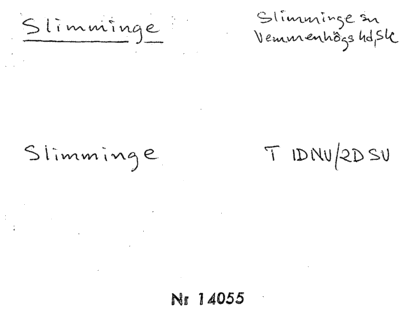 Slimminge
Slimminge sn
Vemmenhögs hd, Sk
Slimminge
T 1DNV/2DSV
Nr 14055